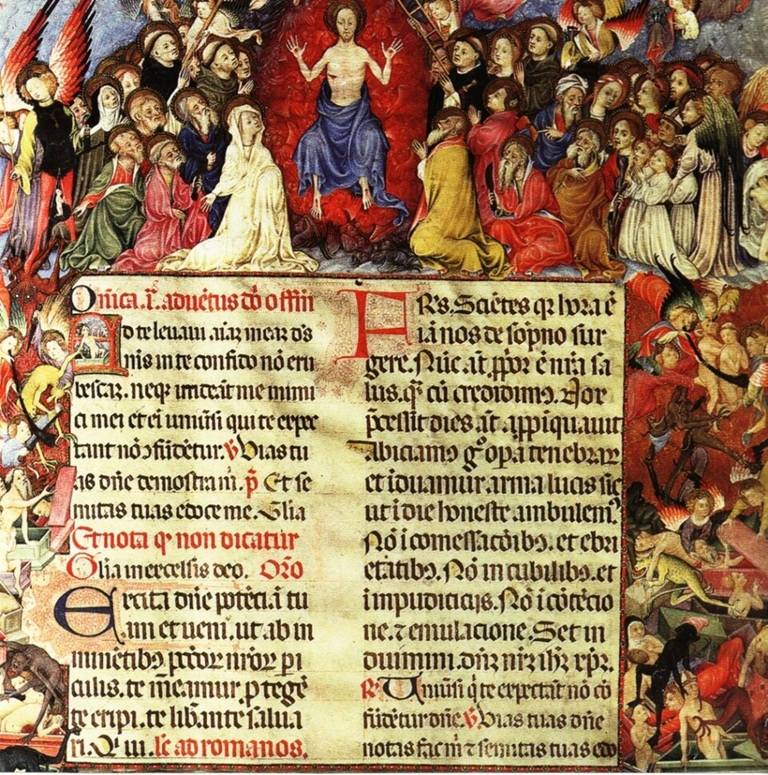 Dñica .i. aduētus dō offm̄
Ad te leuaui aīaꝫ meaꝫ d̄s
m̄s in te confido nō eru
bescaꝫ. neqꝫ irrideāt me inimi
ci mei et ei uniūsi qui te expec
tant nō ꝯfūdētur. ℣ Vias tu
as dñe demostra m̄. p̄ Et se
mitas tuas edoce me. Glīa
Et nota qꝫ non dicatur
Glīa in excelsis deo. Orō
Excita dñe potēciā tu
am et ueni. ut ab in
minētibꝫ pccōꝝ nr̄oꝝ pi
culis. te m̄eamur ꝓtegē
te eripi. te lib̄ante salua
ri. Qi ui. lc̄ ad romanos.
FRs. Sciētes qꝛ hora ē
iā nos de sōpno sur
gere. Nūc āt ꝓpꝛ ē nr̄a sa
lus. qꝫ cū credidimꝰ. Nox
p̄cessit dies āt appīquauit
Abiciamꝰ gͦ opa tenebraꝝ
et iduamur arma lucis sic
ut i die honeste ambulemꝰ
Nō i comessacōibꝫ. et ebri
etātibꝫ. Nō in cubilibꝫ. et
ipudicicijs. Nō i cōtēcio
ne. ⁊ emulacione. Set in
duimini. dñꝫ nr̄ꝫ ih̄ꝫ xp̄ꝫ.
℟ Uniūsi q̄ te expectāt nō cō
fūdētur dñe. ℣ Vias tuas dñe
notas fac m̄ ⁊ semitas tuas edo